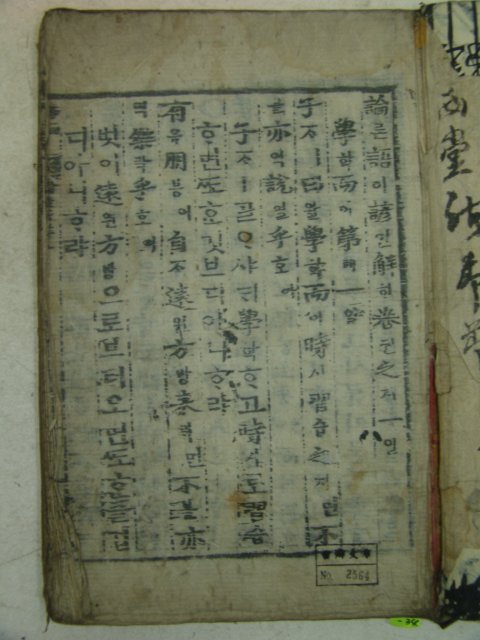 論론語어諺언解ᄒᆡ卷권之지一일
學ᄒᆞᆨ而이第뎨一일
子ᄌᆞㅣ曰왈學ᄒᆞᆨ而이時시習습之지면不
블亦역說열乎호아
子ᄌᆞㅣᄀᆞᆯᄋᆞ샤ᄃᆡ學ᄒᆞᆨᄒᆞ고時시로習습
ᄒᆞ면ᄯᅩᄒᆞᆫ깃브디아니ᄒᆞ랴
有유朋붕이自ᄌᆞ遠원方방來ᄅᆡ면不블亦
역樂락乎호아
벗이遠원方방으로브터오면ᄯᅩᄒᆞᆫ즐겁
디아니ᄒᆞ랴
No. 2564